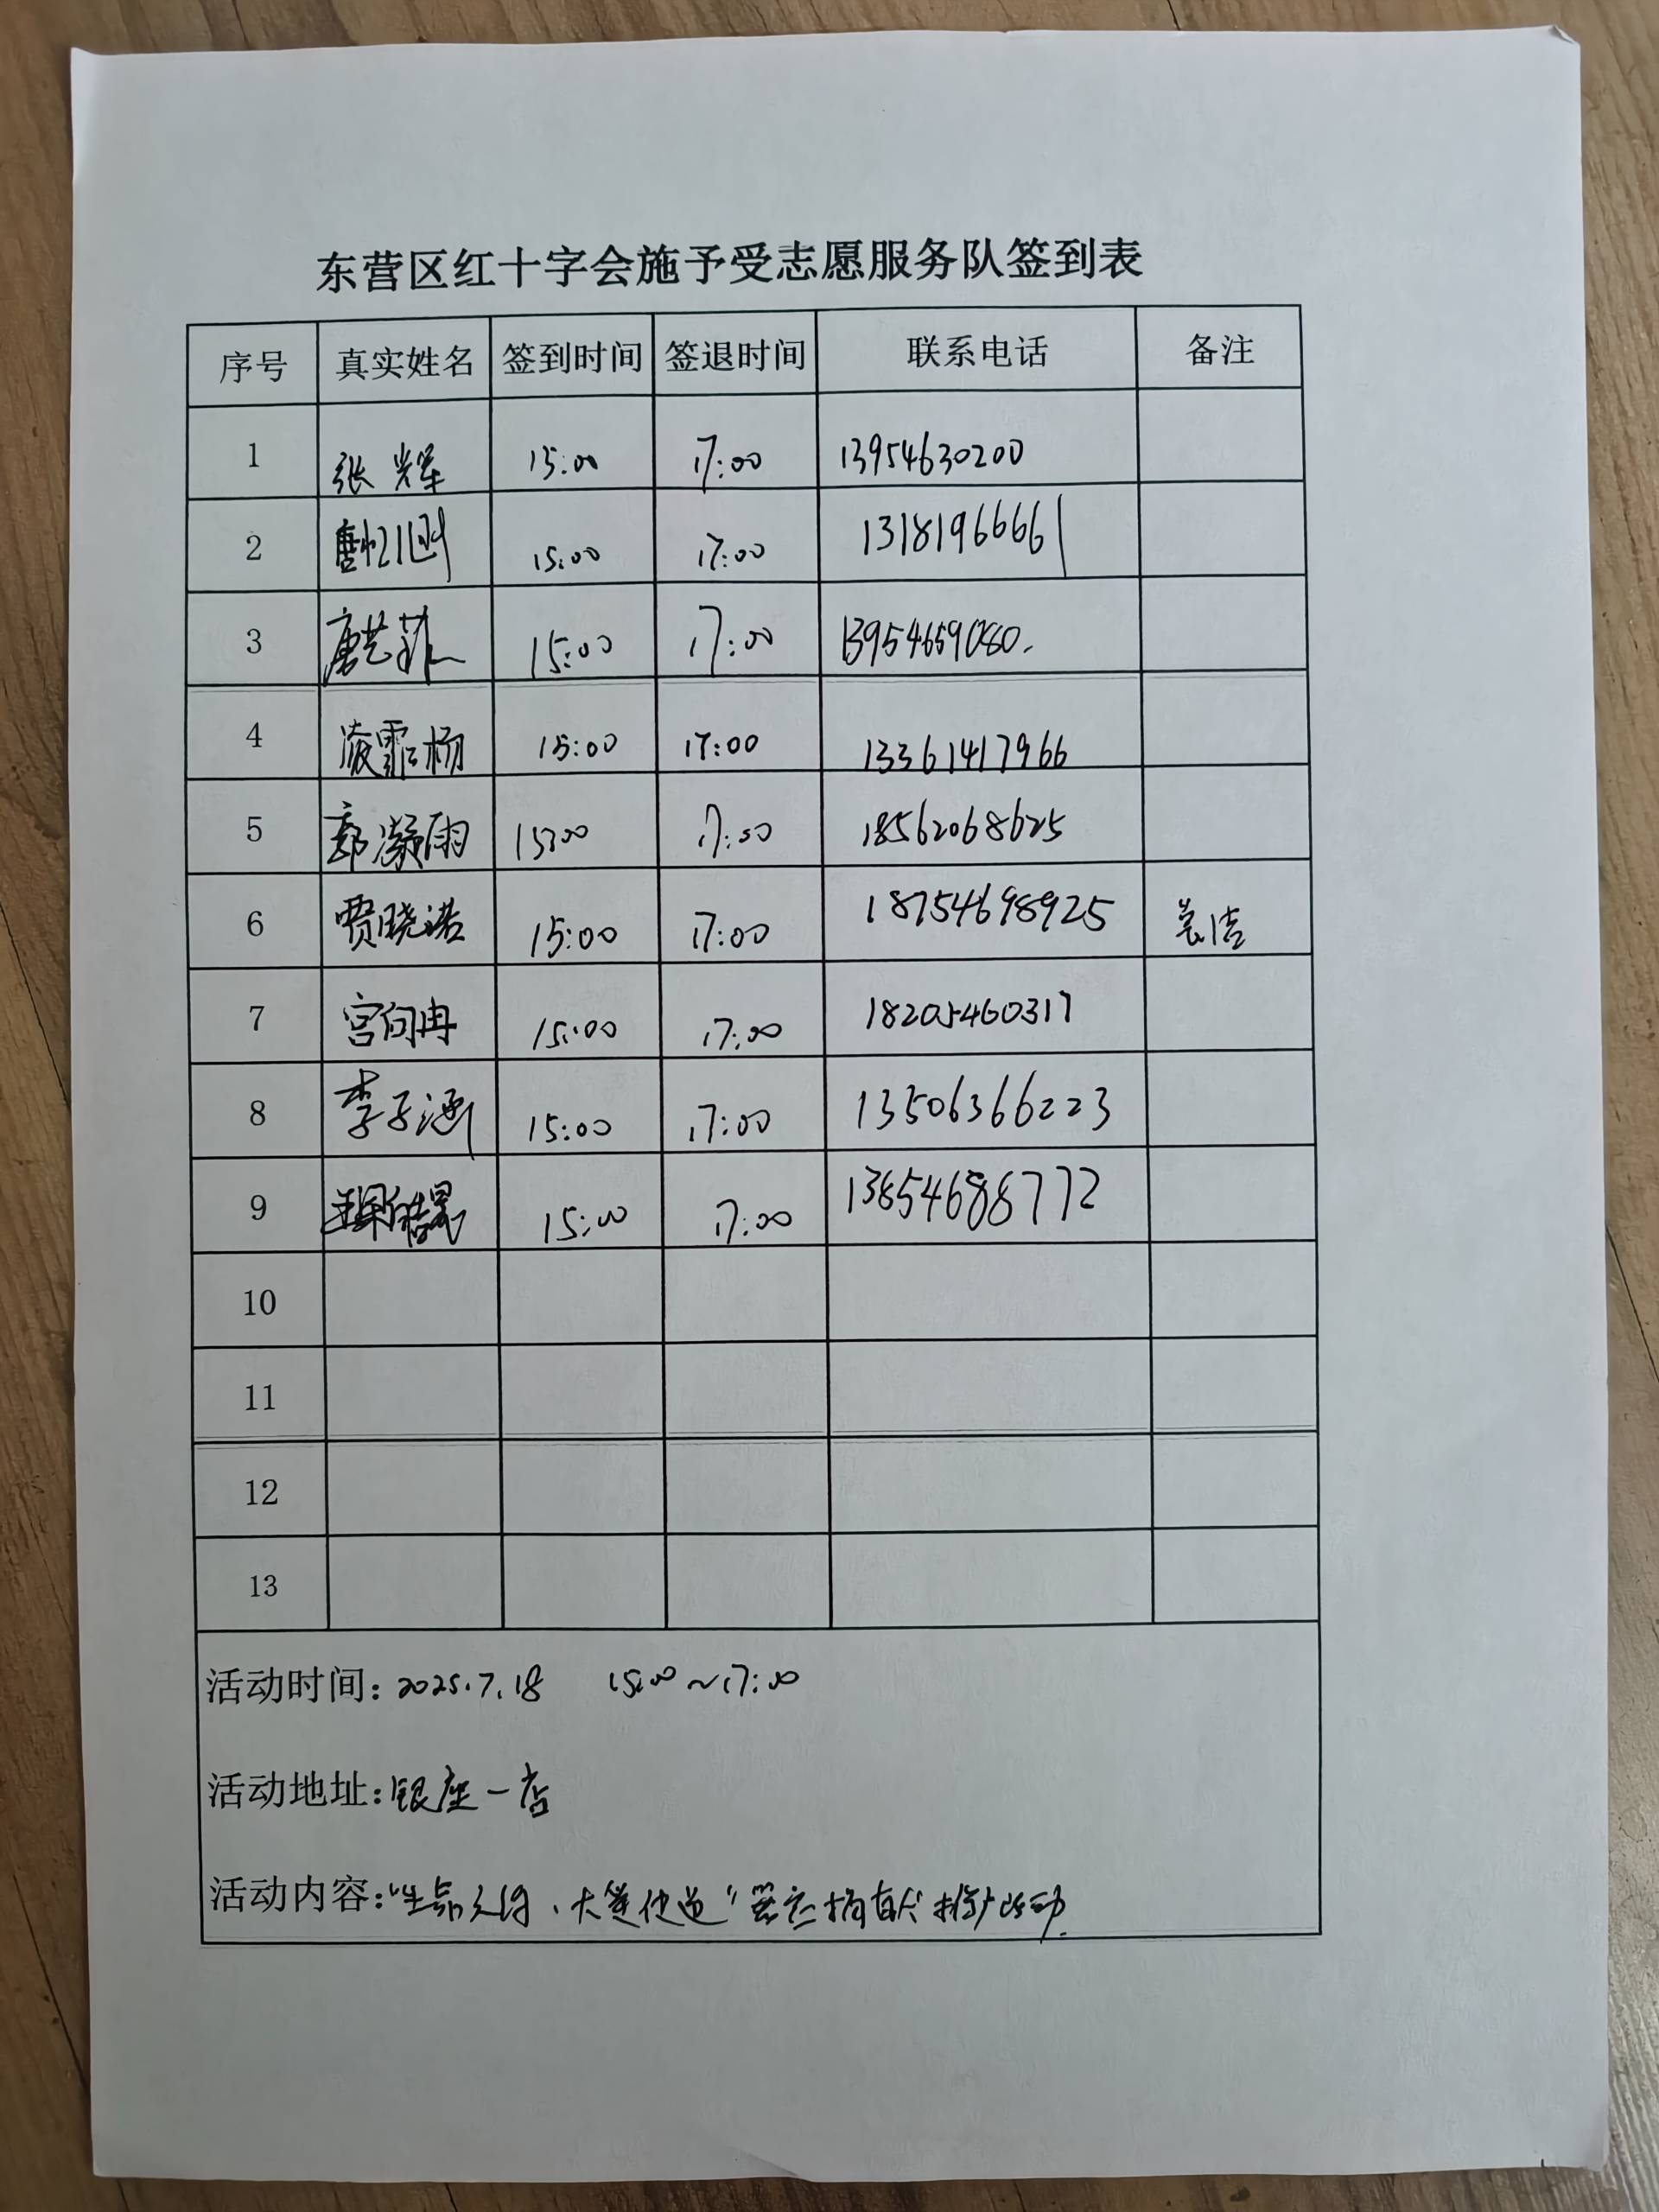 东营区红十字会施予受志愿服务队签到表
序号 真实姓名 签到时间 签退时间 联系电话 备注
1 张辉 15:00 17:00 13954630200
2 唐 15:00 17:00 13181966661
3 唐艺菲 15:00 17:00 13954659080.
4 凌霏杨 15:00 17:00 13361417966
5 郭凝雨 15:00 17:00 18562068625
6 贾晓诺 15:00 17:00 18754698925
7 宫向冉 15:00 17:00 18205460317
8 李子涵 15:00 17:00 13506366223
9 15:00 17:00 13854688772
10
11
12
13
活动时间: 2025.7.18 15:00~17:00
活动地址: 银座一店
活动内容: “生命之约、大爱传递”器官捐献推广活动.